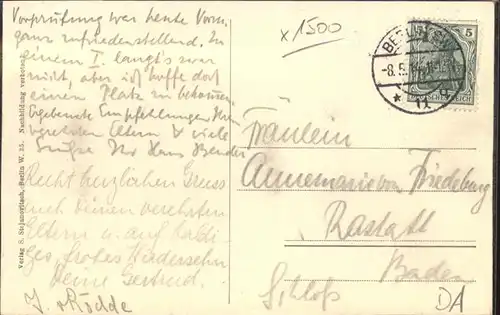 Vorprüfung war heute Vorm.
ganz zufriedenstellend. Zu
einem I. langt's zwar
nicht, aber ich hoffe doch
einen Platz zu bekommen.
Ergebenste Empfehlungen Ihren
verehrten Eltern & viele
Grüsse Ihr Hans Bender
Recht herzlichen Gruss
auch Deinen verehrten
Eltern u. auf baldi-
ges, frohes Wiedersehn
Deine Gertrud.
x1500
BERLIN SW
-8.5.
11
5
DEUTSCHES REICH
Fräulein
Annemarie von Friedeburg
Rastatt
Baden
Schloß
DA
Verlag S. Stojanovitsch, Berlin W. 35. Nachbildung verboten.